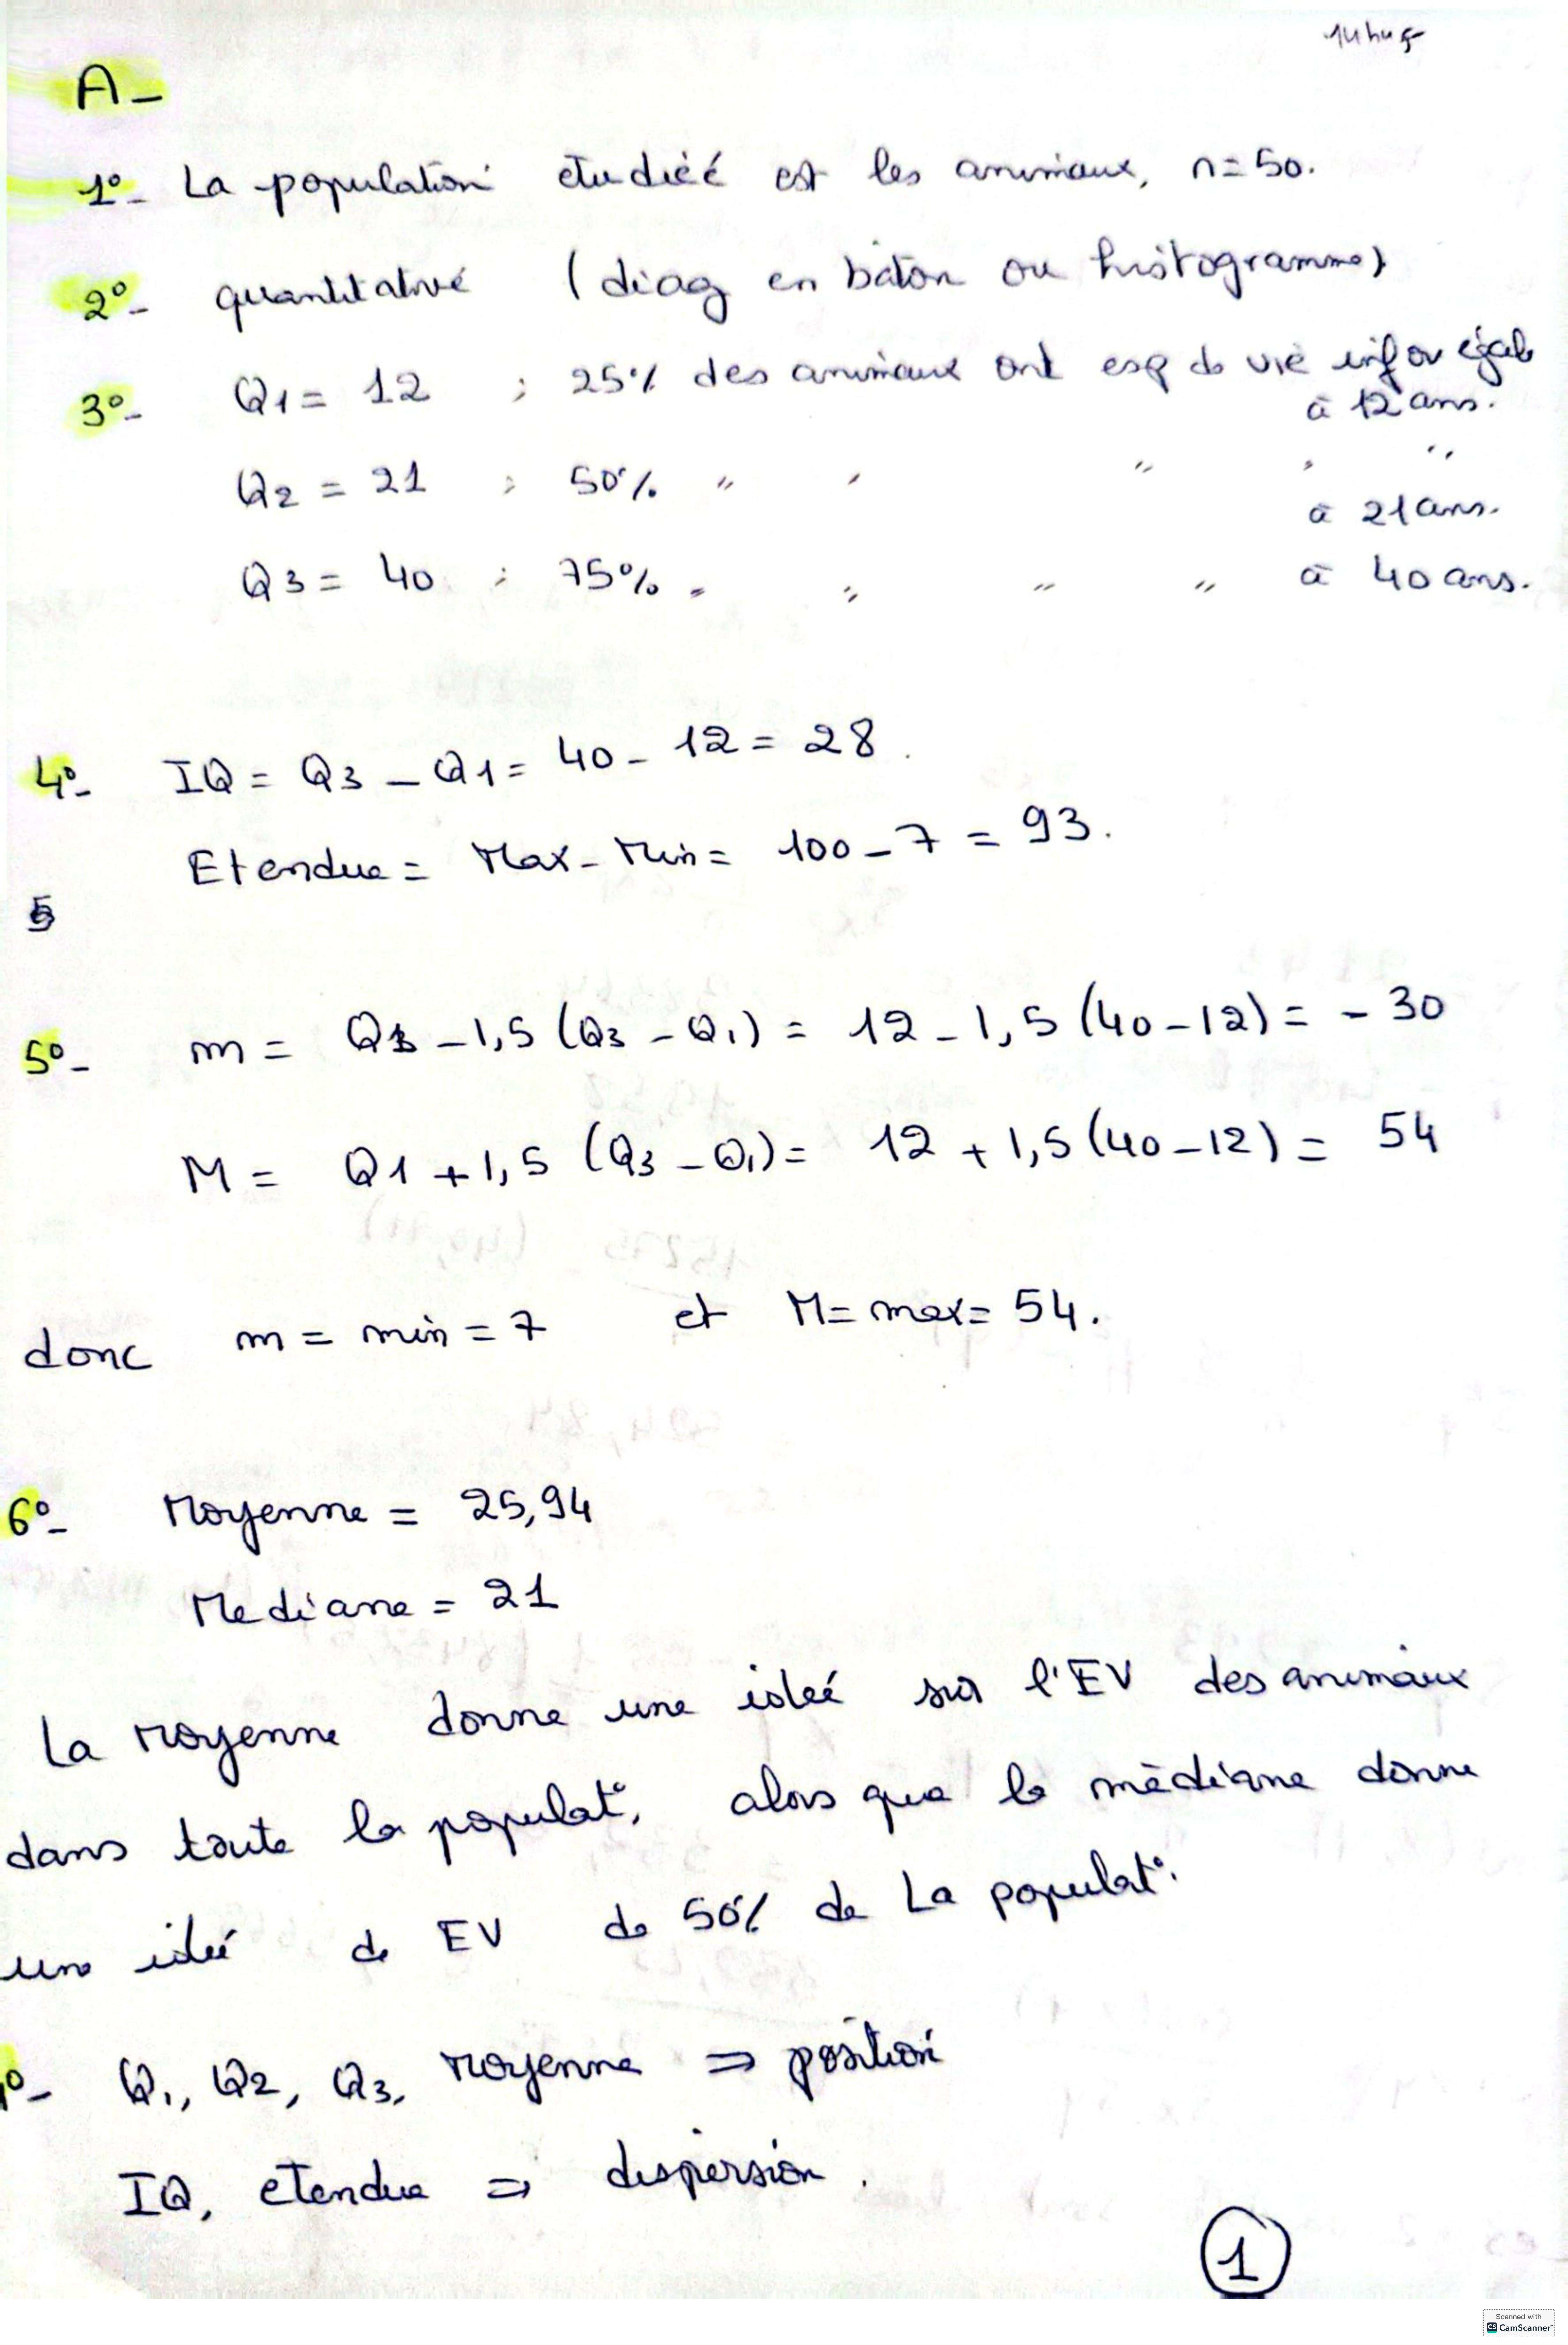 A-
1°- La population étudiéé est les animaux, n=50.
2°- quantitativé (diag en bâton ou histogramme)
3°- Q1 = 12 ; 25% des animaux ont esp de vie inf ou égale
à 12 ans.
Q2 = 21 ; 50% " " " " "
à 21 ans.
Q3 = 40 ; 75% " " " " à 40 ans.
4°- IQ = Q3 - Q1 = 40 - 12 = 28.
Etendue = Max - Min = 100 - 7 = 93.
5
5°- m = Q1 - 1,5 (Q3 - Q1) = 12 - 1,5 (40 - 12) = - 30
M = Q1 + 1,5 (Q3 - Q1) = 12 + 1,5 (40 - 12) = 54
donc m = min = 7 et M = max = 54.
6°- Moyenne = 25,94
Mediane = 21
La moyenne donne une ideé sur l'EV des animaux
dans toute la populat°, alors que la médiane donne
une ideé de EV de 50% de La populat°.
°- Q1, Q2, Q3, moyenne ⇒ position
IQ, etendue ⇒ dispersion.
1
Scanned with
CS CamScanner